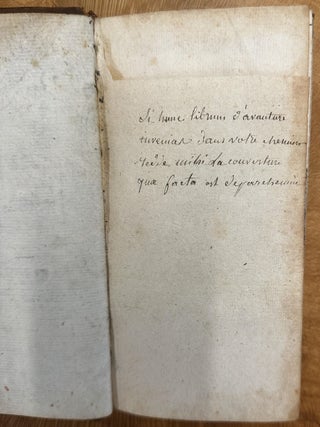 Si hunc librum d'avanture
invenias dans votre chemin
redde mihi la couverture
quæ facta est de parchemin